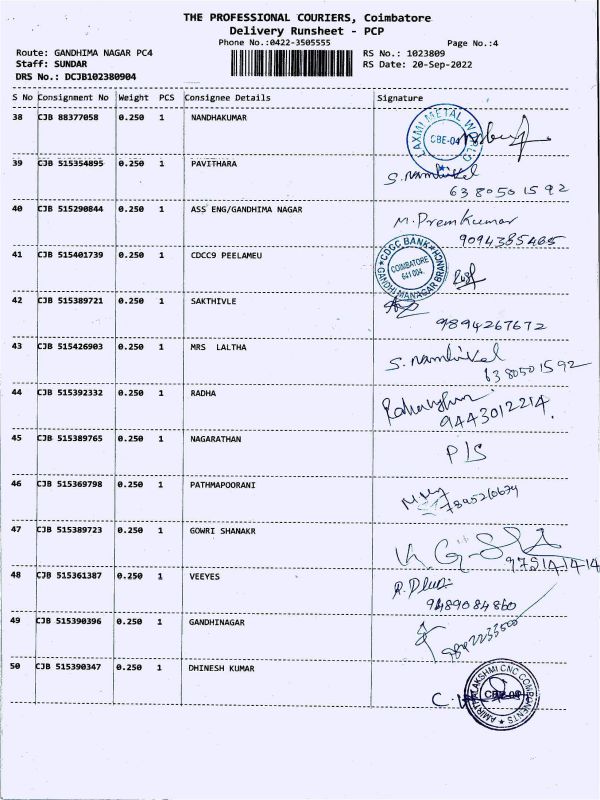 THE PROFESSIONAL COURIERS, Coimbatore
Delivery Runsheet - PCP
Phone No.:0422-3505555 Page No.:4
Route: GANDHIMA NAGAR PC4 RS No.: 1023809
Staff: SUNDAR RS Date: 20-Sep-2022
DRS No.: DCJB102380904
S No Consignment No Weight PCS Consignee Details Signature
38 CJB 88377058 0.250 1 NANDHAKUMAR
LAXMI METAL WORLD
CBE-04
39 CJB 515354895 0.250 1 PAVITHARA
S. Nambikal
63 80501592
40 CJB 515290844 0.250 1 ASS ENG/GANDHIMA NAGAR
M. Premkumar
9094385465
41 CJB 515401739 0.250 1 CDCC9 PEELAMEU
CDCC BANK
COIMBATORE
641 004.
GANDHI MANAGAR BRANCH
42 CJB 515389721 0.250 1 SAKTHIVLE
9894267672
43 CJB 515426903 0.250 1 MRS LALTHA
S. Nambikal
63 80501592
44 CJB 515392332 0.250 1 RADHA
9443012214.
45 CJB 515389765 0.250 1 NAGARATHAN
P/S
46 CJB 515369798 0.250 1 PATHMAPOORANI
47 CJB 515389723 0.250 1 GOWRI SHANAKR
48 CJB 515361387 0.250 1 VEEYES
9489084860
49 CJB 515390396 0.250 1 GANDHINAGAR
50 CJB 515390347 0.250 1 DHINESH KUMAR
LAKSHMI CNC COMPONENTS